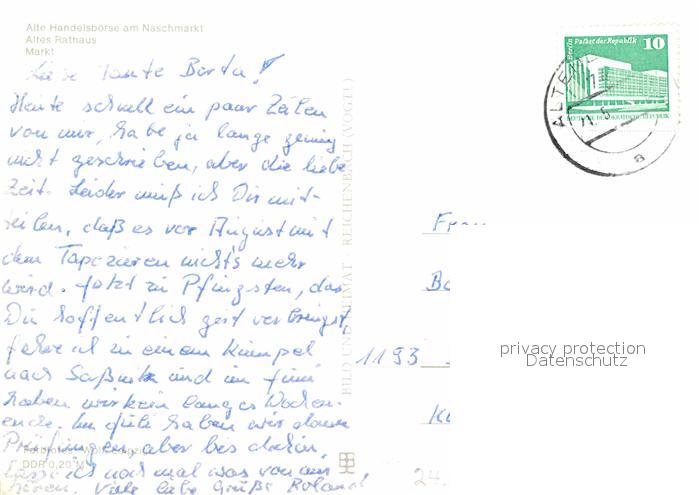 Alte Handelsbörse am Naschmarkt
Altes Rathaus
Markt
Liebe Tante Berta!
Heute schnell ein paar Zeilen
von mir, habe ja lange genug
nicht geschrieben, aber die liebe
Zeit. Leider muß ich Dir mit-
teilen, daß es vor August mit
dem Tapezieren nichts mehr
wird. Jetzt zu Pfingsten, das
Du hoffentlich gut verbringst,
fahre ich zu einem Kumpel
nach Saßnitz und im Juni
haben wir kein langes Wochen-
ende. Im Juli haben wir dann
Prüfungen aber bis dahin,
lasse ich noch mal was von mir
hören. Viele liebe Grüße Roland
DDR 0,20 M
BILD UND HEIMAT · REICHENBACH (VOGTL)
Berlin Palast der Republik 10
DEUTSCHE DEMOKRATISCHE REPUBLIK
ALTEN
a
1193
24.
privacy protection
Datenschutz